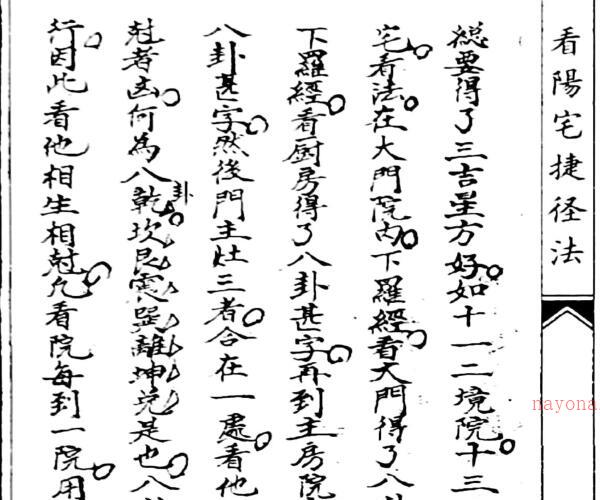 看陽宅捷径法
総要得了三吉星方好如十一二境院十三
宅看法在大門院内下羅經看大門得了八
下羅經看厨房得了八卦甚字再到主房院
八卦甚字然後門主灶三者合在一處看他
尅者凶何為八卦乾坎艮震巽離坤兌是也八
行因此看他相生相尅凡看院每到一院用
nayona